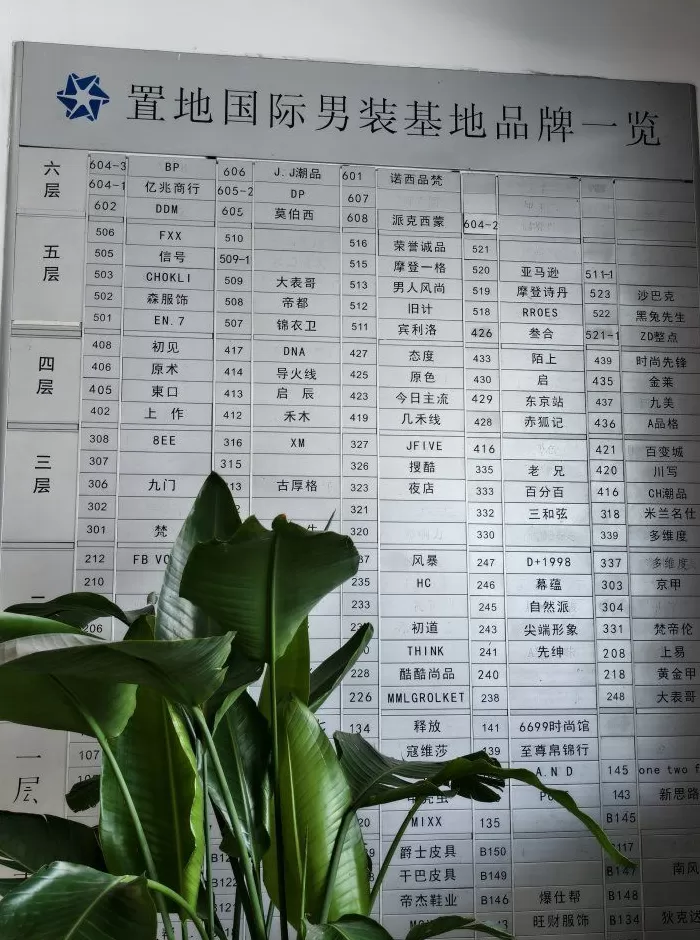 置地国际男装基地品牌一览
六层 604-3 BP 606 J.J潮品 601 诺西品梵
604-1 亿兆商行 605-2 DP 607
602 DDM 605 莫伯西 608 派克西蒙 604-2
五层 506 FXX 510 516 荣誉诚品 521
505 信号 509-1 515 摩登一格 520 亚马逊 511-1
503 CHOKLI 509 大表哥 513 男人风尚 519 摩登诗丹 523 沙巴克
502 森服饰 508 帝都 512 旧计 518 RROES 522 黑兔先生
501 EN.7 507 锦衣卫 511 宾利洛 426 叁合 521-1 ZD整点
四层 408 初见 417 DNA 427 态度 433 陌上 439 时尚先锋
406 原术 414 导火线 425 原色 430 启 435 金莱
405 東口 413 启辰 423 今日主流 429 东京站 437 九美
402 上作 412 禾木 419 几禾线 428 赤狐记 436 A品格
三层 308 8EE 316 XM 327 JFIVE 416 421 百变城
307 315 326 搜酷 335 老兄 420 川写
306 九门 313 古厚格 323 夜店 333 百分百 416 CH潮品
302 321 332 三和弦 318 米兰名仕
301 梵 320 330 339 多维度
212 FB 风暴 247 D+1998 337 多维度
210 235 HC 246 幕蕴 303 京甲
233 245 自然派 304
206 初道 243 尖端形象 331 梵帝伦
THINK 241 先绅 208 上易
228 酷酷尚品 240 218 黄金甲
226 MMLGROLKET 238 248 大表哥
一层 134 释放 141 6699时尚馆
107 寇维莎 139 至尊帛锦行
A.N.D 145 one two
143 新思路
MIXX 135 B145
爵士皮具 B150 117
干巴皮具 B149 B147 南风
B122 帝杰鞋业 B146 爆仕帮 B148
B121 旺财服饰 B134 狄克